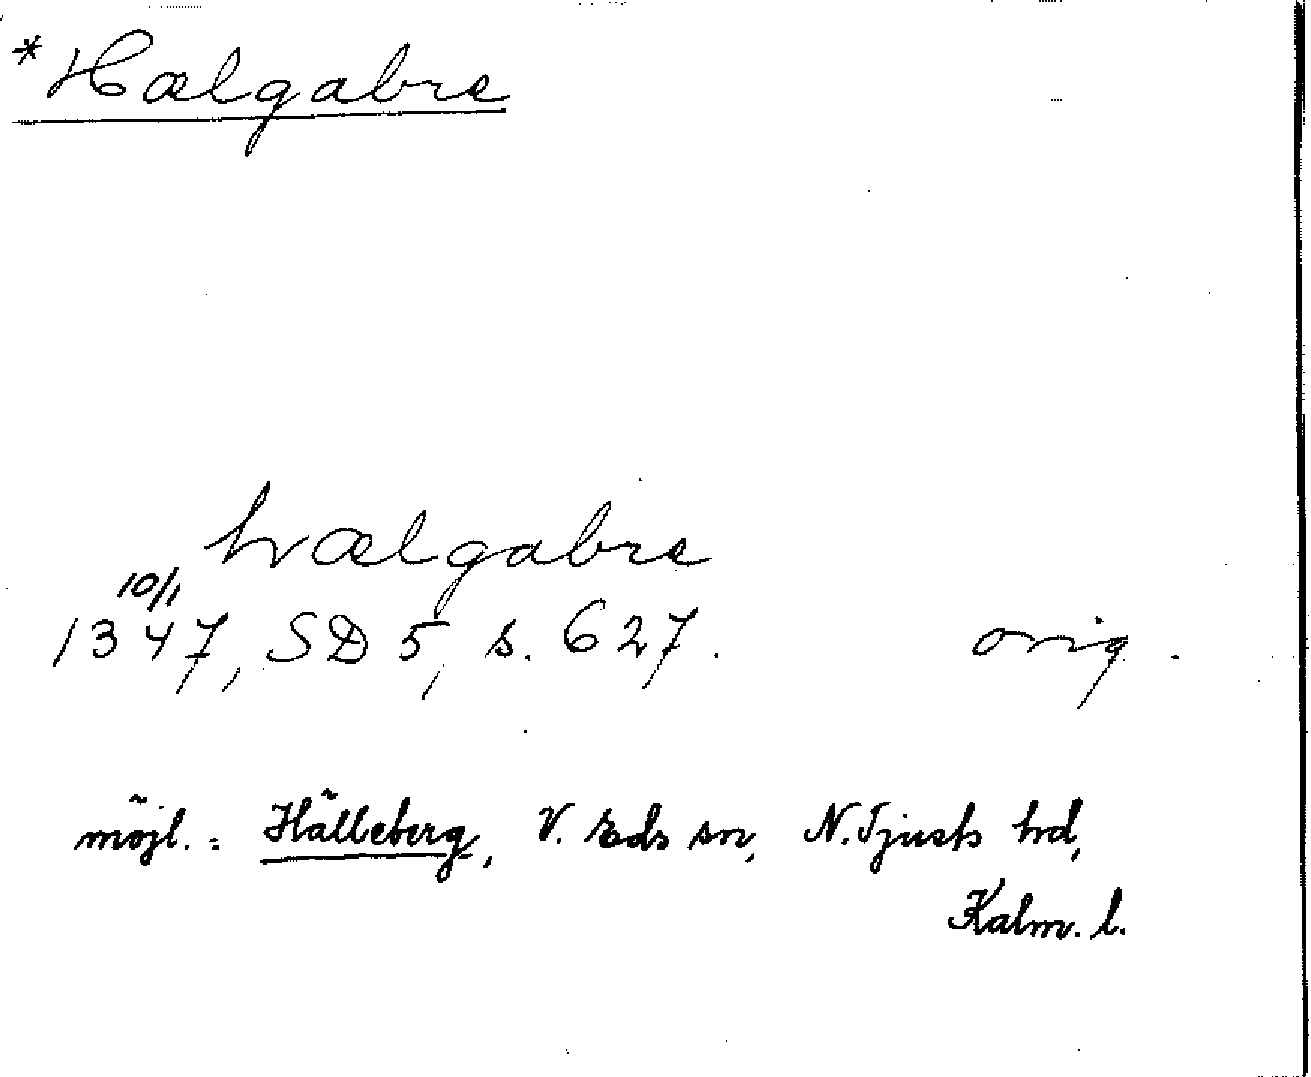 *Hælgabre
hælgabre
10/1
1347, SD 5, s. 627. orig.
möjl.: Hälleberg, V. Eds sn, N. Tjusts hd,
Kalm. l.